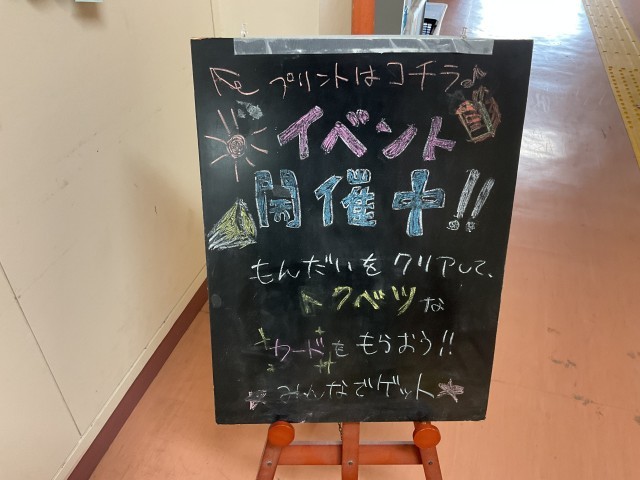 プリントはコチラ♪
イベント
開催中!!
もんだいをクリアして、
トクベツな
カードをもらおう!!
みんなでゲット